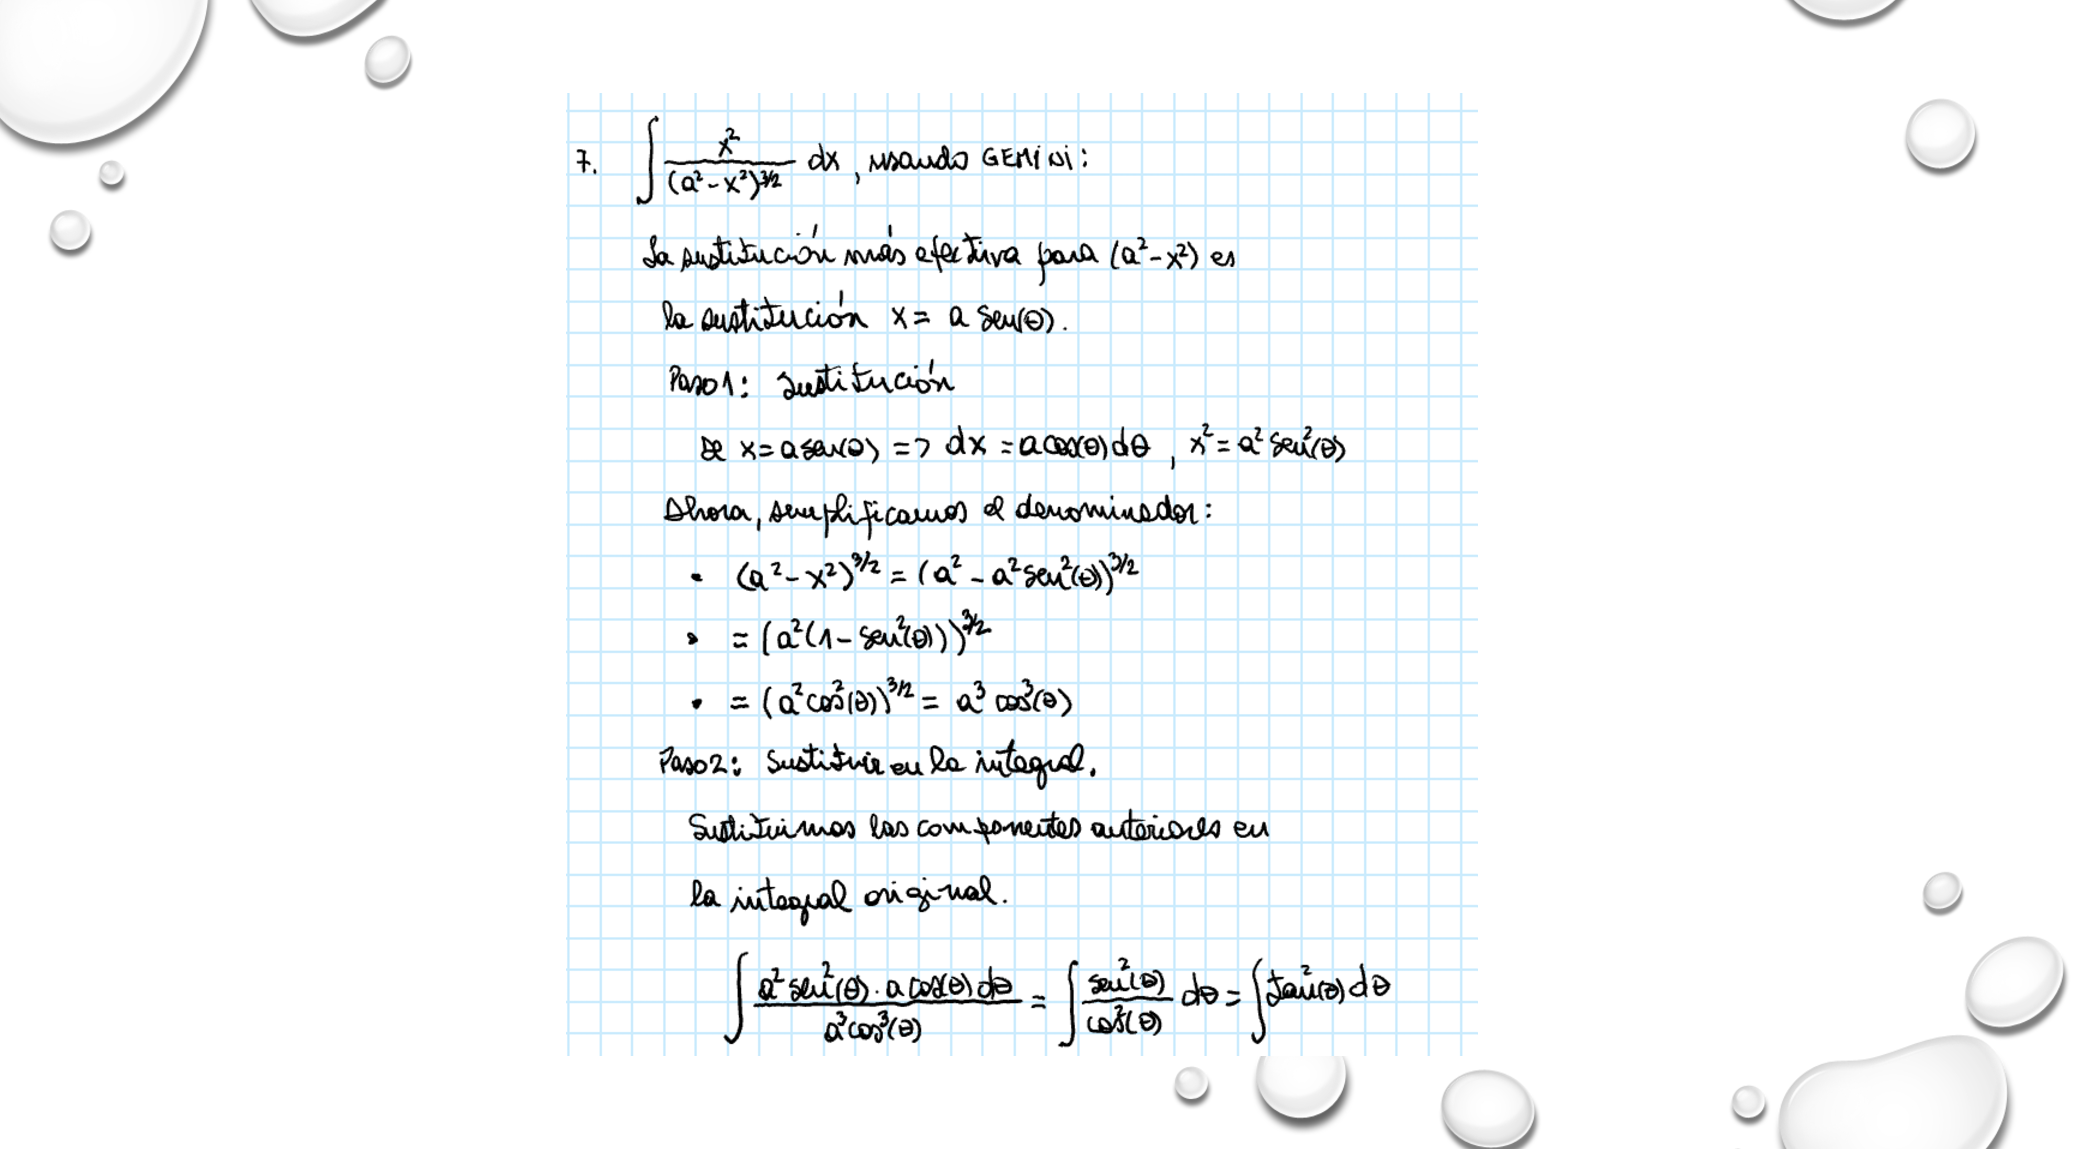 7. ∫ x²/(a²-x²)^3/2 dx, usando GEMINI:
La sustitución más efectiva para (a²-x²) es
la sustitución x = a sen(θ).
Paso1: Sustitución
x = a sen(θ) => dx = a cos(θ) dθ, x² = a² sen²(θ)
Ahora, simplificamos el denominador:
• (a²-x²)^3/2 = (a² - a² sen²(θ))^3/2
• = (a²(1 - sen²(θ)))^3/2
• = (a² cos²(θ))^3/2 = a³ cos³(θ)
Paso2: Sustituir en la integral.
Sustituimos las componentes anteriores en
la integral original.
∫ a² sen²(θ) · a cos(θ) dθ / a³ cos³(θ) = ∫ sen²(θ)/cos²(θ) dθ = ∫ tan²(θ) dθ